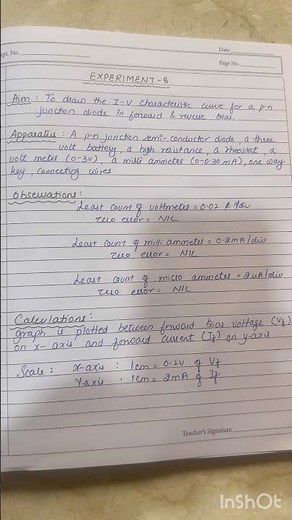 Date
Expt. No.
Page No.
EXPERIMENT-8
Aim : To draw the I-V characteristic curve for a p-n
junction diode in forward & reverse bias.
Apparatus : A p-n junction semi-conductor diode, a three
volt battery, a high resistance, a rheostat, a
volt meter (0-3v), a milli ammeter (0-030 mA), one way
key, connecting wires
Observations:
Least count of voltmeter = 0.02
zero error = NIL
Least count of milli ammeter = 0.2mA/div
zero error = NIL
Least count of micro ammeter = 2uA/div
zero error = NIL
Calculations:
graph is plotted between forward bias voltage (Vf)
on x-axis and forward current (If) on y-axis
Scale: x-axis : 1cm = 0.2v of Vf
Y-axis : 1cm = 2mA of If
Teacher's Signature
InShOt